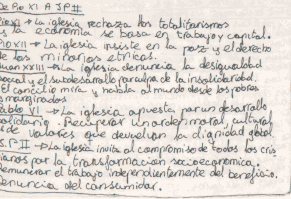 De Pío XI A JPII
Pío XI → La iglesia rechaza los totalitarismos
y la economía se basa en trabajo y capital.
Pío XII → La iglesia insiste en la paz y el derecho
de las minorías étnicas.
Juan XXIII → La iglesia denuncia la desigualdad
social y el subdesarrollo paradigma de la insolidaridad.
El concilio mira y habla al mundo desde los pobres
marginados
Pablo VI → La iglesia apuesta por un desarrollo
solidario. Recuperar un orden moral, cultural
de valores que devuelvan la dignidad global
J.P II → La iglesia invita al compromiso de todos los cris
ianos por la transformación socioeconómica.
Remunerar el trabajo independientemente del beneficio.
denuncia del consumidor.